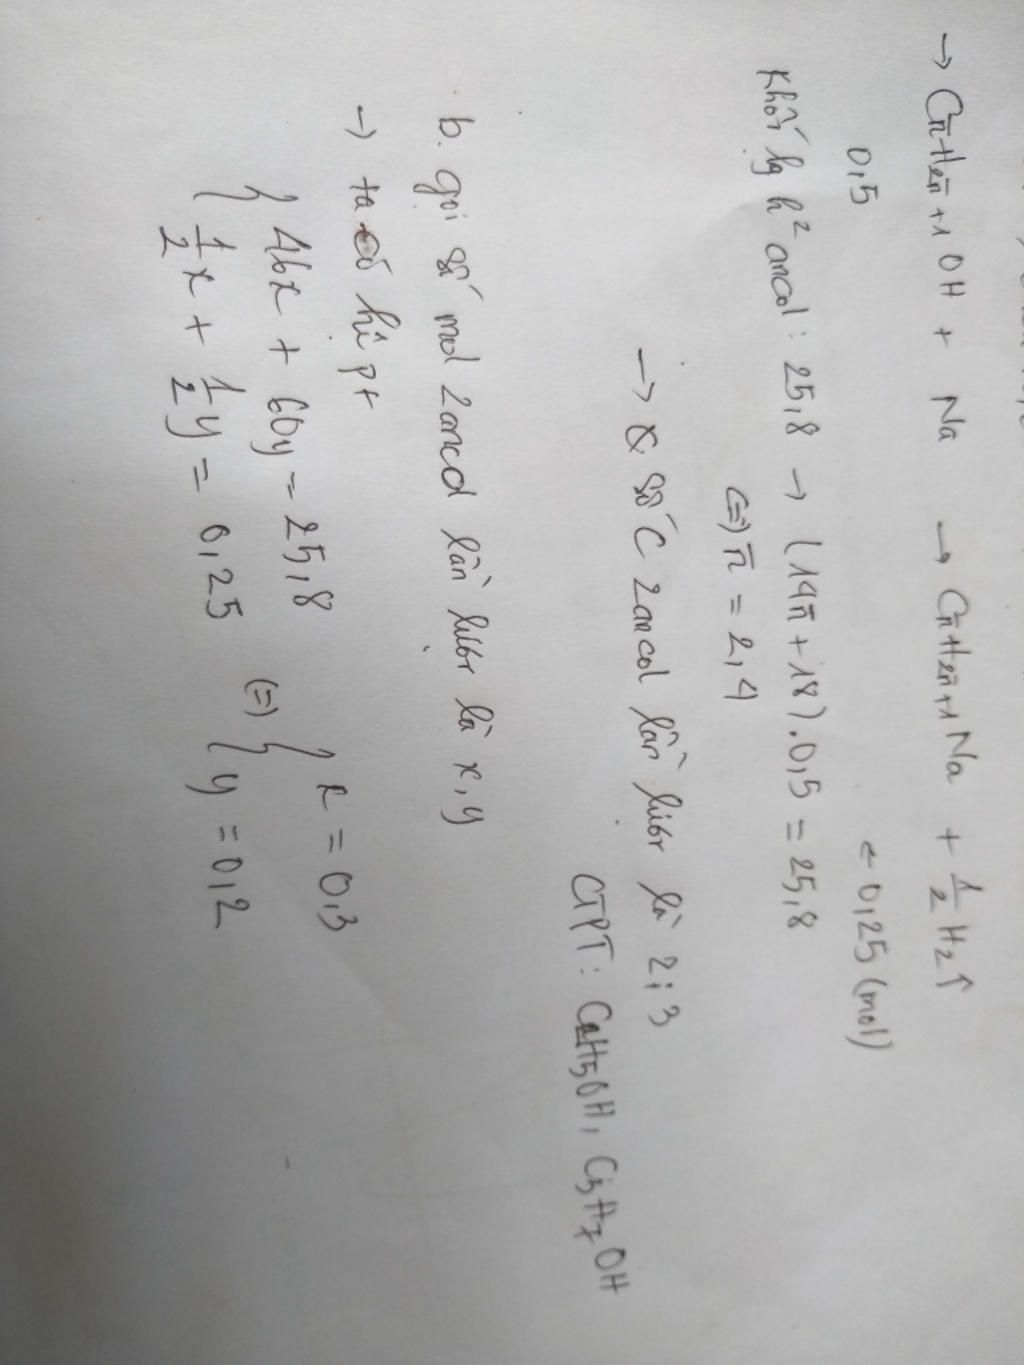 → Cn̄H2n̄+1OH + Na → Cn̄H2n̄+1Na + 1/2 H2↑
0,5 ← 0,25 (mol)
Khối lg h² ancol: 25,8 → (14n̄ + 18).0,5 = 25,8
(=) n̄ = 2,4
→ số C 2 ancol lần lượt là 2; 3
CTPT: C2H5OH, C3H7OH
b. gọi số mol 2 ancol lần lượt là x, y
→ ta có hệ pt
{ 46x + 60y = 25,8 (=) { x = 0,3
{ 1/2 x + 1/2 y = 0,25 { y = 0,2